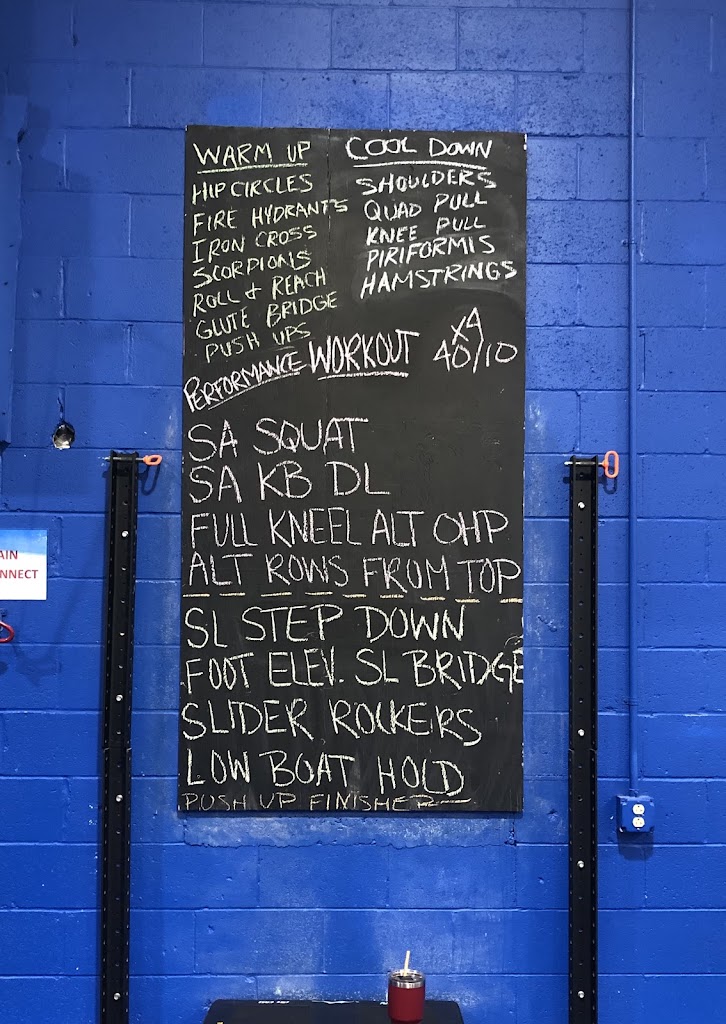 WARM UP
HIP CIRCLES
FIRE HYDRANTS
IRON CROSS
SCORPIONS
ROLL & REACH
GLUTE BRIDGE
PUSH UPS
COOL DOWN
SHOULDERS
QUAD PULL
KNEE PULL
PIRIFORMIS
HAMSTRINGS
PERFORMANCE WORKOUT
X4
40/10
SA SQUAT
SA KB DL
FULL KNEEL ALT OHP
ALT ROWS FROM TOP
SL STEP DOWN
FOOT ELEV. SL BRIDGE
SLIDER ROCKERS
LOW BOAT HOLD
PUSH UP FINISHER
AIN
NNECT